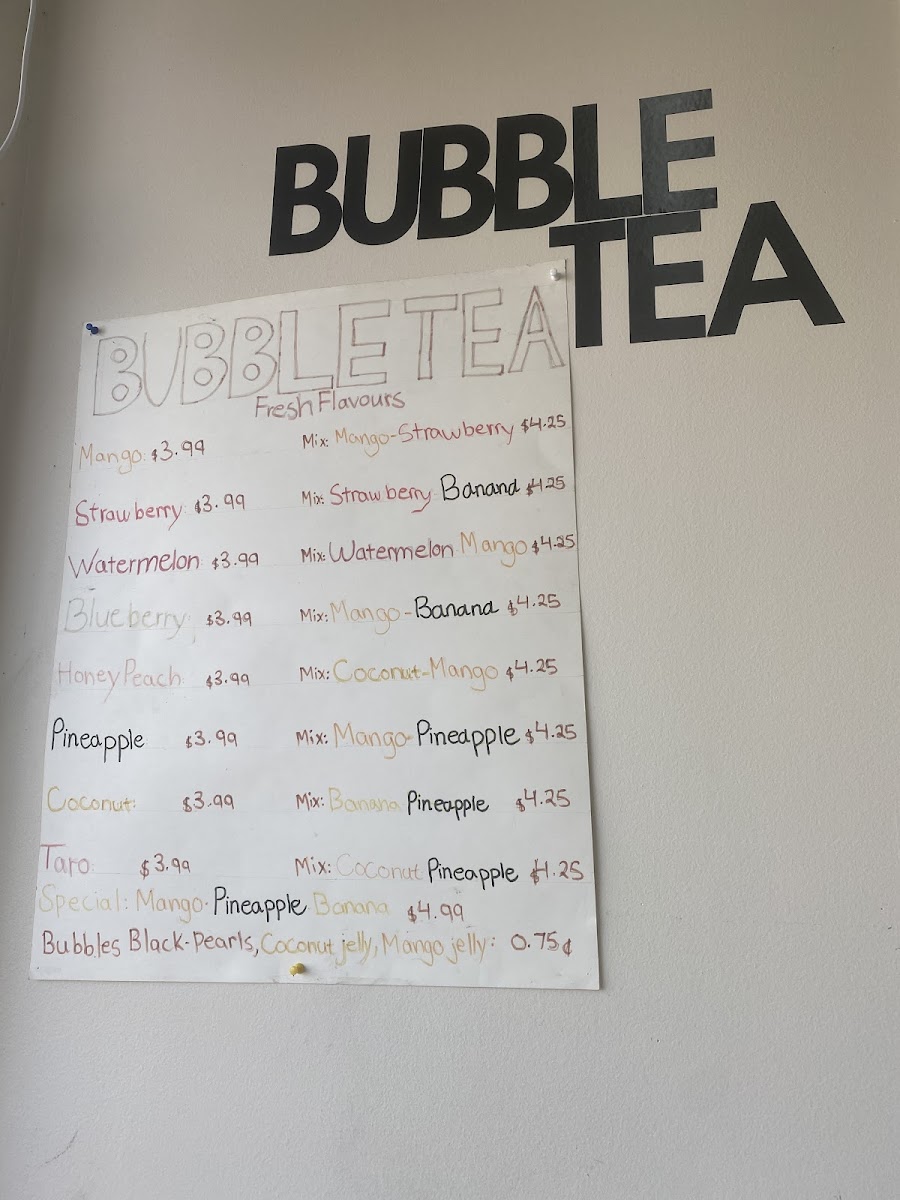 BUBBLE
TEA
BUBBLE TEA
Fresh Flavours
Mango: $3.99 Mix: Mango-Strawberry $4.25
Strawberry: $3.99 Mix: Strawberry Banana $4.25
Watermelon $3.99 Mix: Watermelon Mango $4.25
Blueberry: $3.99 Mix: Mango-Banana $4.25
Honey Peach: $3.99 Mix: Coconut-Mango $4.25
Pineapple $3.99 Mix: Mango-Pineapple $4.25
Coconut: $3.99 Mix: Banana Pineapple $4.25
Taro: $3.99 Mix: Coconut Pineapple $4.25
Special: Mango-Pineapple Banana $4.99
Bubbles Black-Pearls, Coconut jelly, Mango jelly: 0.75¢